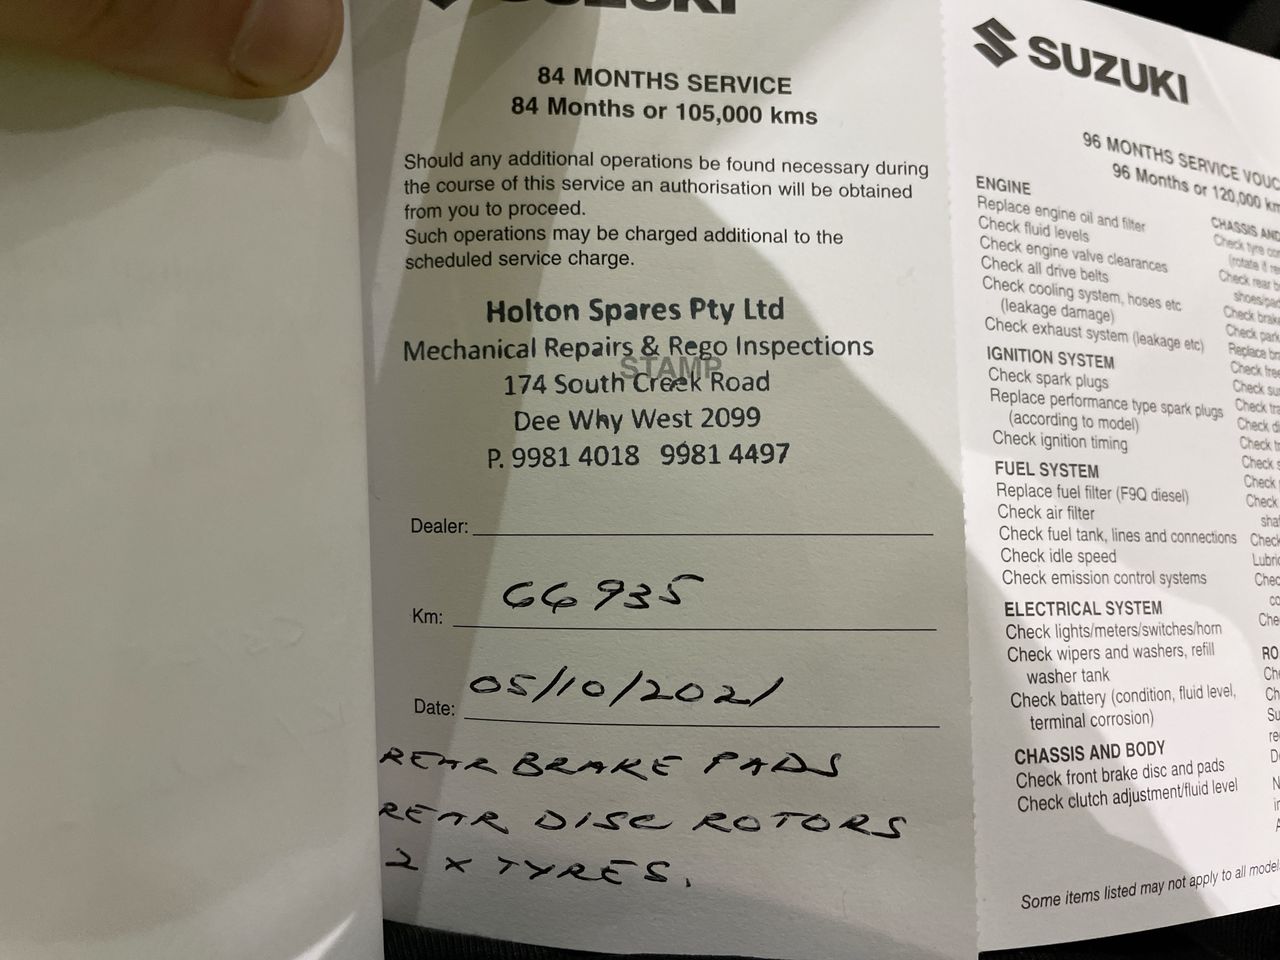 SUZUKI
84 MONTHS SERVICE
84 Months or 105,000 kms
Should any additional operations be found necessary during
the course of this service an authorisation will be obtained
from you to proceed.
Such operations may be charged additional to the
scheduled service charge.
Holton Spares Pty Ltd
Mechanical Repairs & Rego Inspections
STAMP
174 South Creek Road
Dee Why West 2099
P. 9981 4018 9981 4497
Dealer:
Km: 66935
Date: 05/10/2021
REAR BRAKE PADS
REAR DISC ROTORS
2 X TYRES.
SUZUKI
96 MONTHS SERVICE
96 Months or 120,000
ENGINE
Replace engine oil and filter
Check fluid levels
Check engine valve clearances
Check all drive belts
Check cooling system, hoses etc
(leakage damage)
Check exhaust system (leakage etc)
IGNITION SYSTEM
Check spark plugs
Replace performance type spark plugs
(according to model)
Check ignition timing
FUEL SYSTEM
Replace fuel filter (F9Q diesel)
Check air filter
Check fuel tank, lines and connections
Check idle speed
Check emission control systems
ELECTRICAL SYSTEM
Check lights/meters/switches/horn
Check wipers and washers, refill
washer tank
Check battery (condition, fluid level,
terminal corrosion)
CHASSIS AND BODY
Check front brake disc and pads
Check clutch adjustment/fluid level
CHASSIS AND
Check tyre
Check rear
Check
Check
Replace
Check
Check
Check
Check
Check
Check
Check
Check
Some items listed may not apply to all